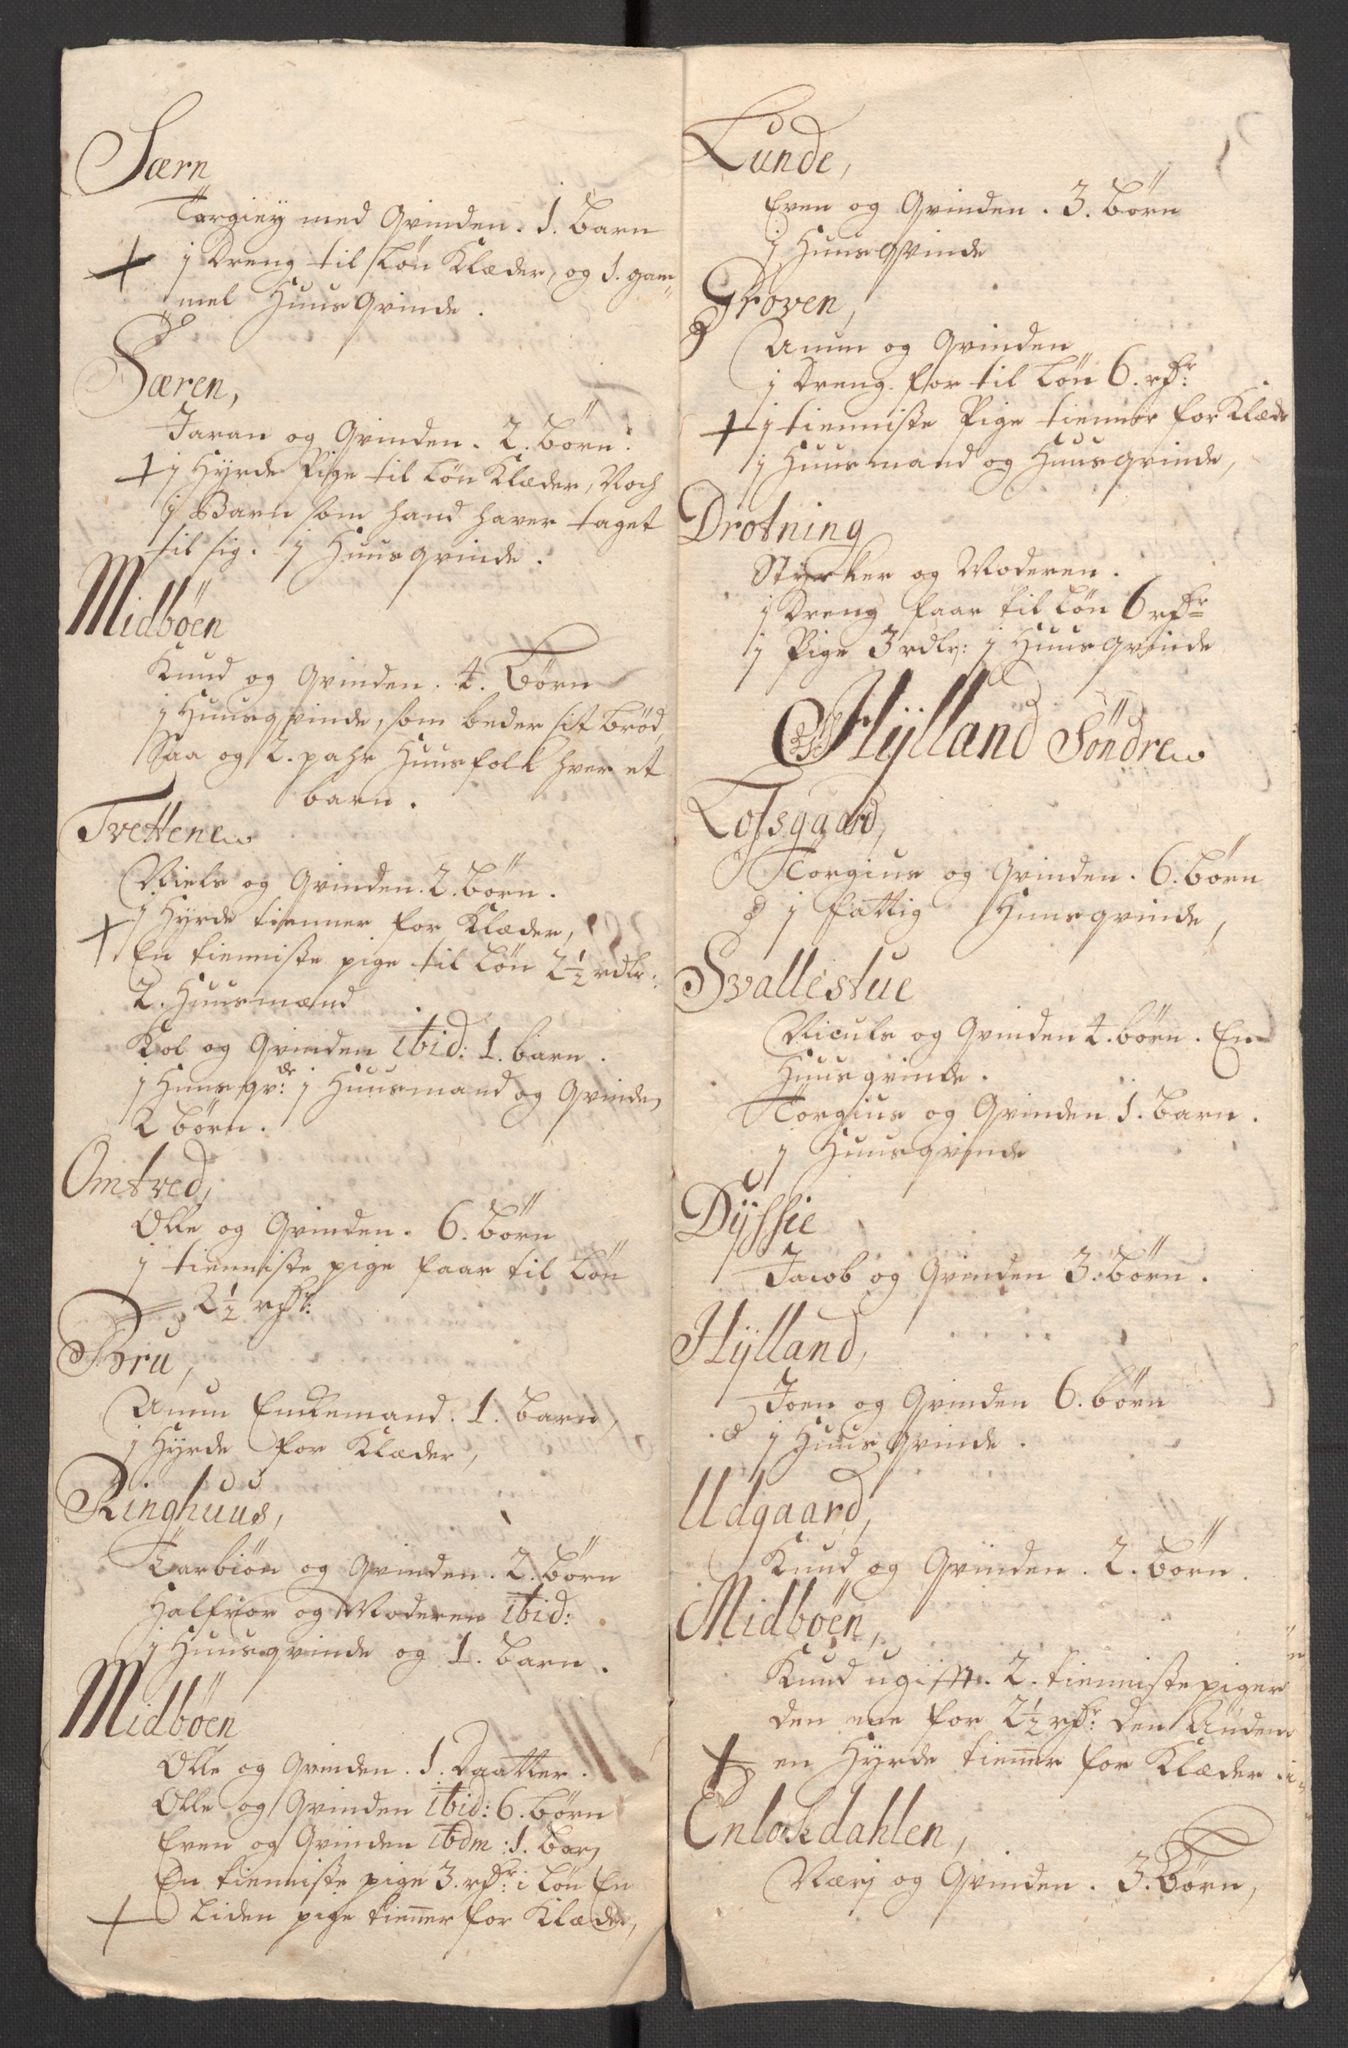 Særn
Torgiey med Qvinden. 1. Barn
+ j Dreng til Løn Klæder, og 1. gam-
mel Huus Qvinde.
Særen,
Jaran og Qvinden. 2. Børn.
+ j Hyrde Pige til Løn Klæder, Noch
j Barn som hand haver taget
til sig. j Huusqvinde.
Midbøen
Knud og Qvinden. 4. Børn
j Huusqvinde, som beder sit brød,
Saa og 2. pahr Huusfolk hver et
barn.
Tvettene
Niels og Qvinden. 2. Børn.
+ j Hyrde tienner for Klæder,
En tienniste pige til Løn 2½ rdlr:
2. Huusmænd
Kol og Qvinden ibid: 1. barn.
j Huusqv:de j Huusmand og Qvinde,
2 børn.
Omtved,
Olle og Qvinden. 6. børn
j tienniste pige faar til Løn
2½ rdr:
Bru,
Aum Enkemand. 1. barn,
j Hyrde for Klæder,
Ringhuus,
Tarbiøn og Qvinden. 2. børn
Halfvor og Moderen ibid:
j Huusqvinde og 1. barn.
Midbøen
Olle og Qvinden. 1. Daatter.
Olle og Qvinden ibid: 6. børn
Even og Qvinden ibdm: 1. bar,
En tienniste pige 3. rdr: i Løn En
+ Liden pige tienner for Klæder,
Lunde,
Even og Qvinden. 3. Børn
j Huus Qvinde
Groven,
Aum og Qvinden
j Dreng for til Løn 6. rdr:
+ j tienniste Pige tienner for Klæde
j Huusmand og Huusqvinde,
Drotning
Styrker og Moderen.
j Dreng faar til Løn 6 rdr
j Pige 3 rdlr: j Huusqvinde
Hÿlland Söndre
Lofsgaard,
Torgius og Qvinden. 6. børn
j fattig Huusqvinde,
Svallestue
Niculs og Qvinden 4. børn. En
Huusqvinde.
Torgius og Qvinden 1. Barn.
j Huusqvinde
Dÿssie
Jacob og Qvinden 3. børn.
Hÿlland,
Joen og Qvinden 6. børn
j Huus Qvinde.
Udgaard,
Knud og Qvinden. 2. børn.
Midbøen,
Knud ugift. 2. tienniste piger
den ene for 2½ rdr: den Anden
+ en Hyrde tienner for Klæder
Enlokdahlen,
Nærj og Qvinden. 3. Børn,